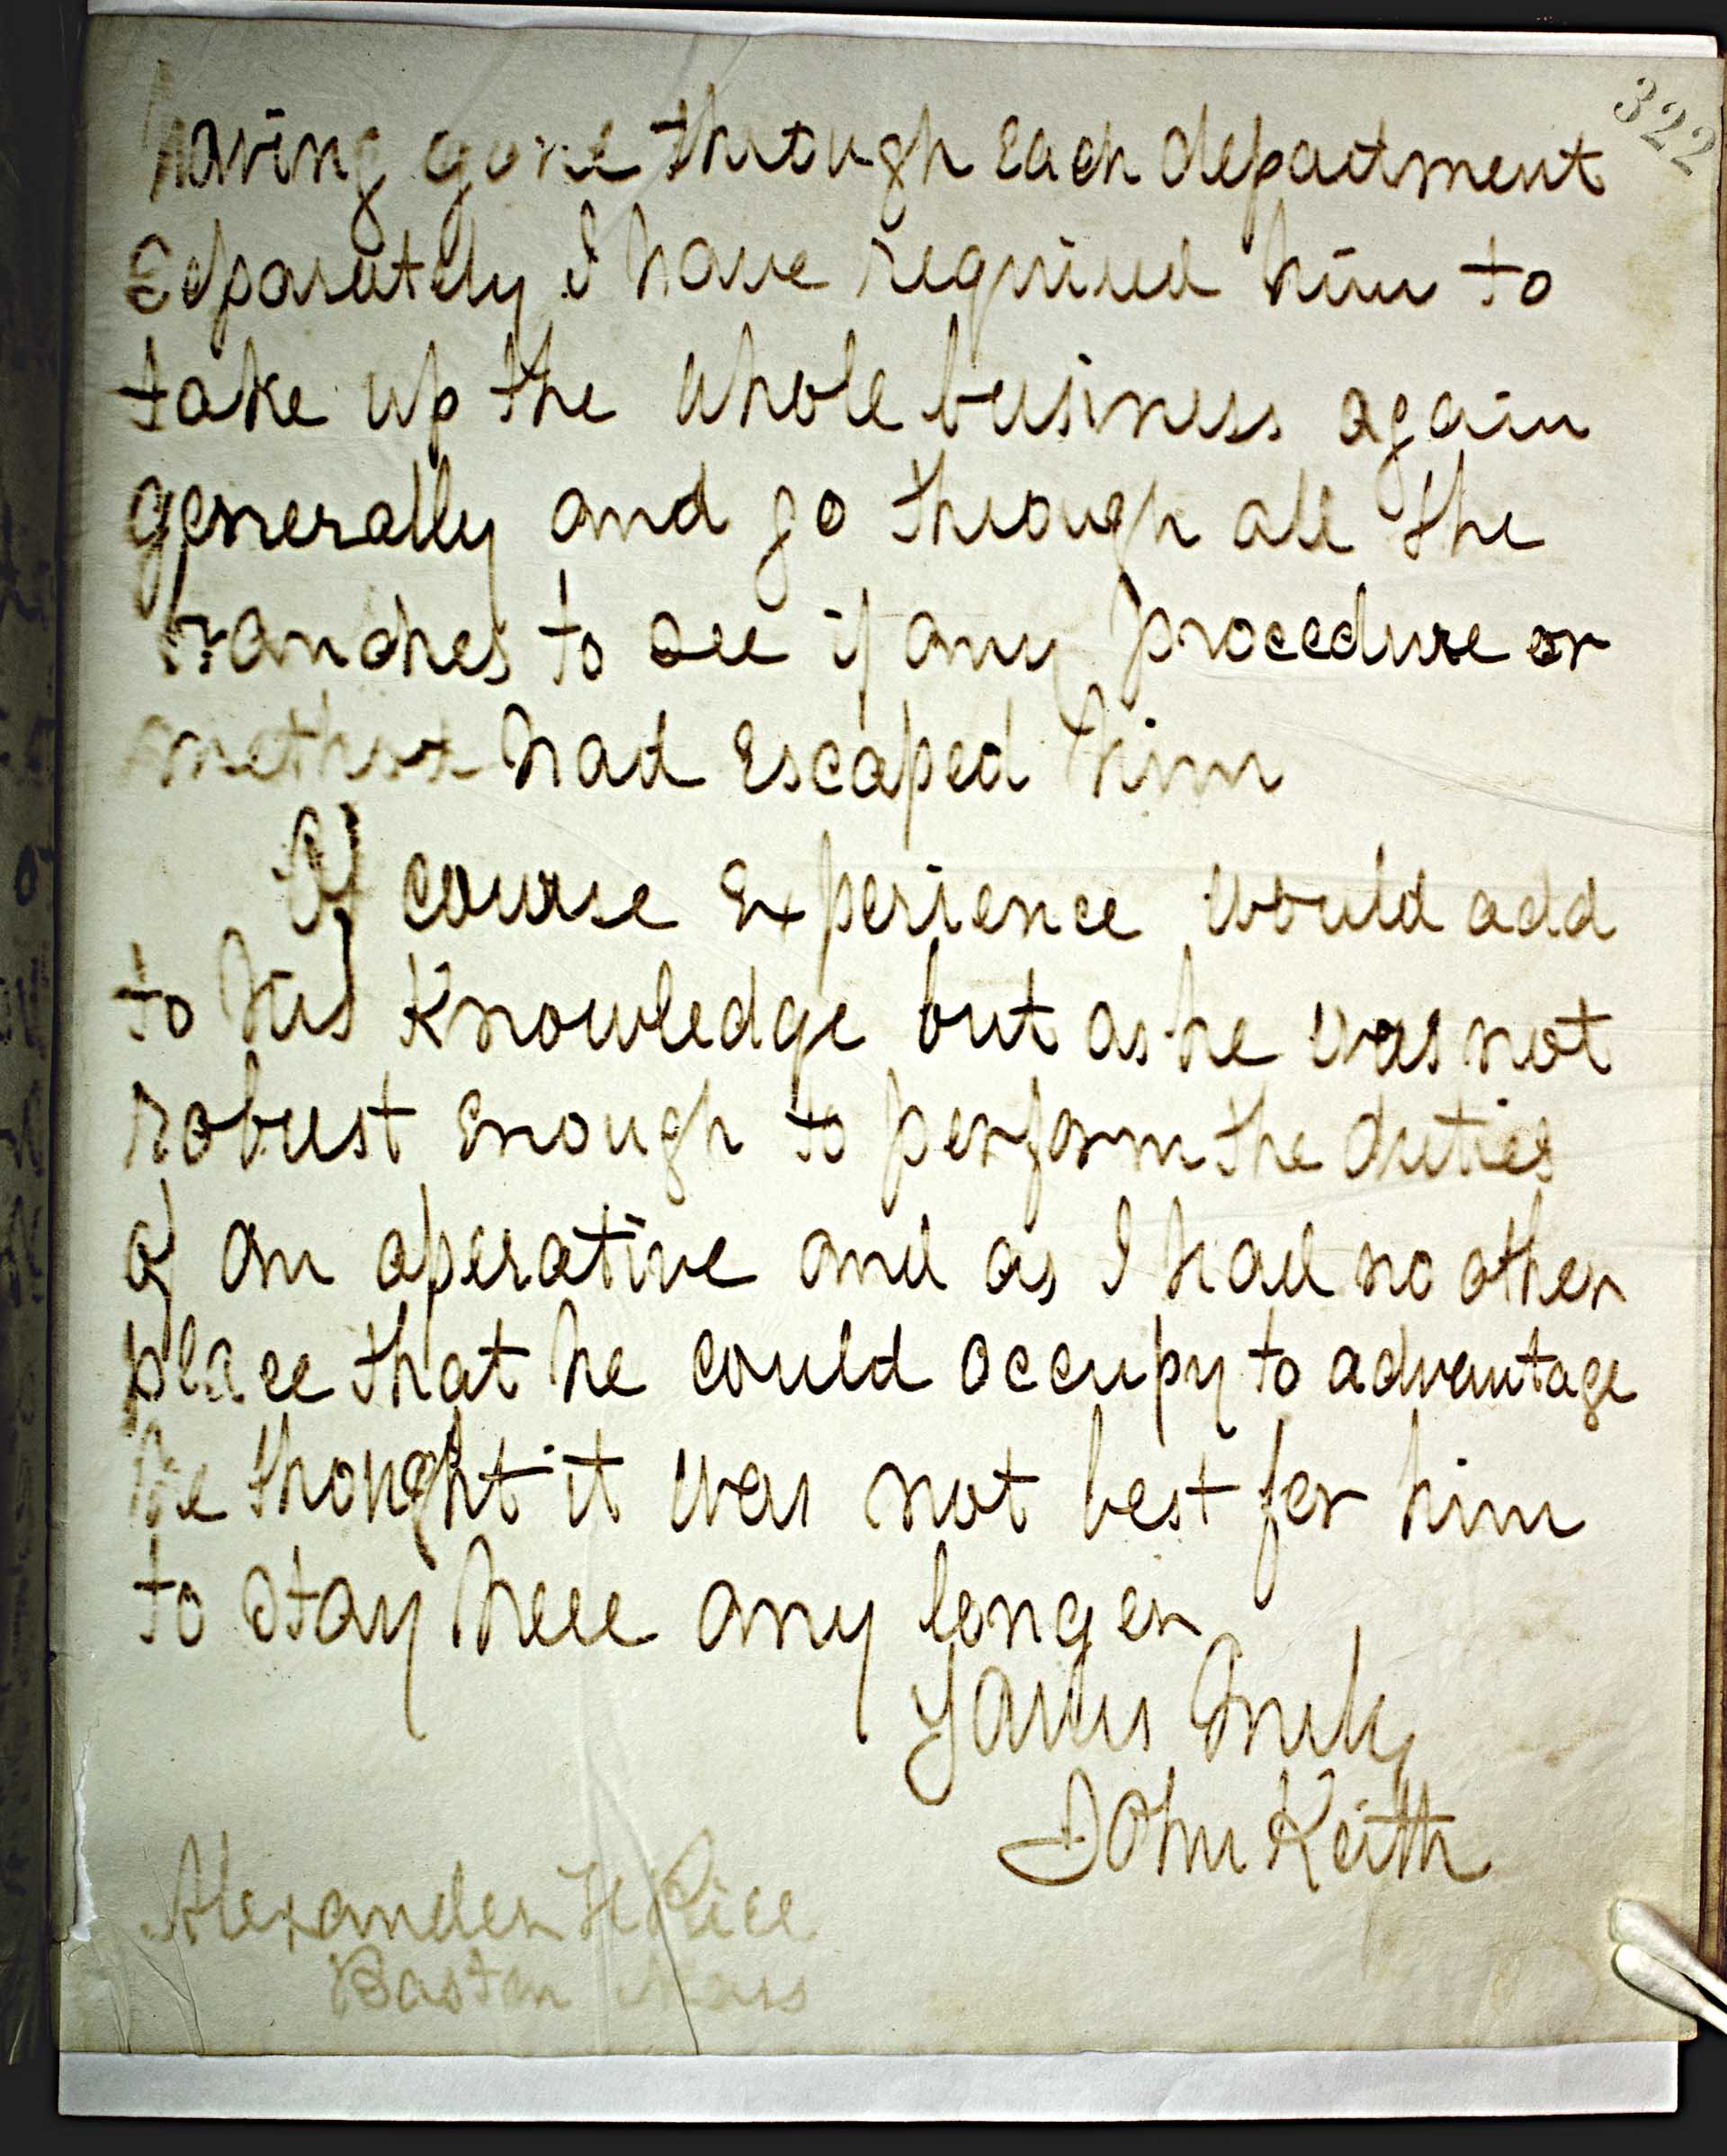 322
having gone through each department
Separately I have required him to
take up the whole business again
generally and go through all the
branches to see if any procedure or
method had escaped him
Of course experience would add
to his Knowledge but as he was not
robust enough to perform the duties
of an operative and as I had no other
place that he could occupy to advantage
he thought it was not best for him
to stay here any longer
Yours Truly
John Keith
Alexander H Rice
Boston Mass